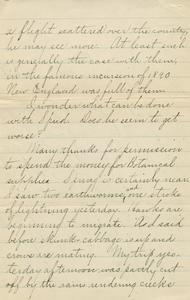 a flight scattered over the country,
he may see more. At least such
is generally the case with them,
in the famous incursion of 1890
New England was full of them.
I wonder what can be done
with Spud. Does he seem to get
worse?
Many thanks for permission
to spend the money for Botanical
supplies. Spring is certainly near
I saw two earthworms, and one streak
of lightning yesterday. Hawks are
beginning to migrate. And
before skunk-cabbage, and
crows are mating. My trip yes-
terday afternoon was partly cut
off by the rain rendering creeks